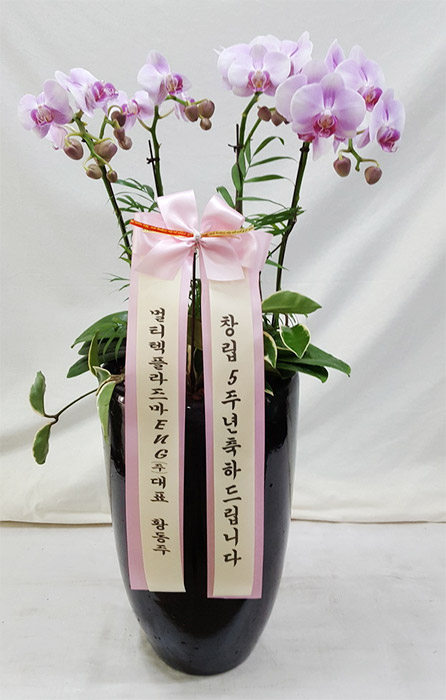 창립 5주년 축하드립니다
멀티텍플라즈마ENG㈜대표 황동주